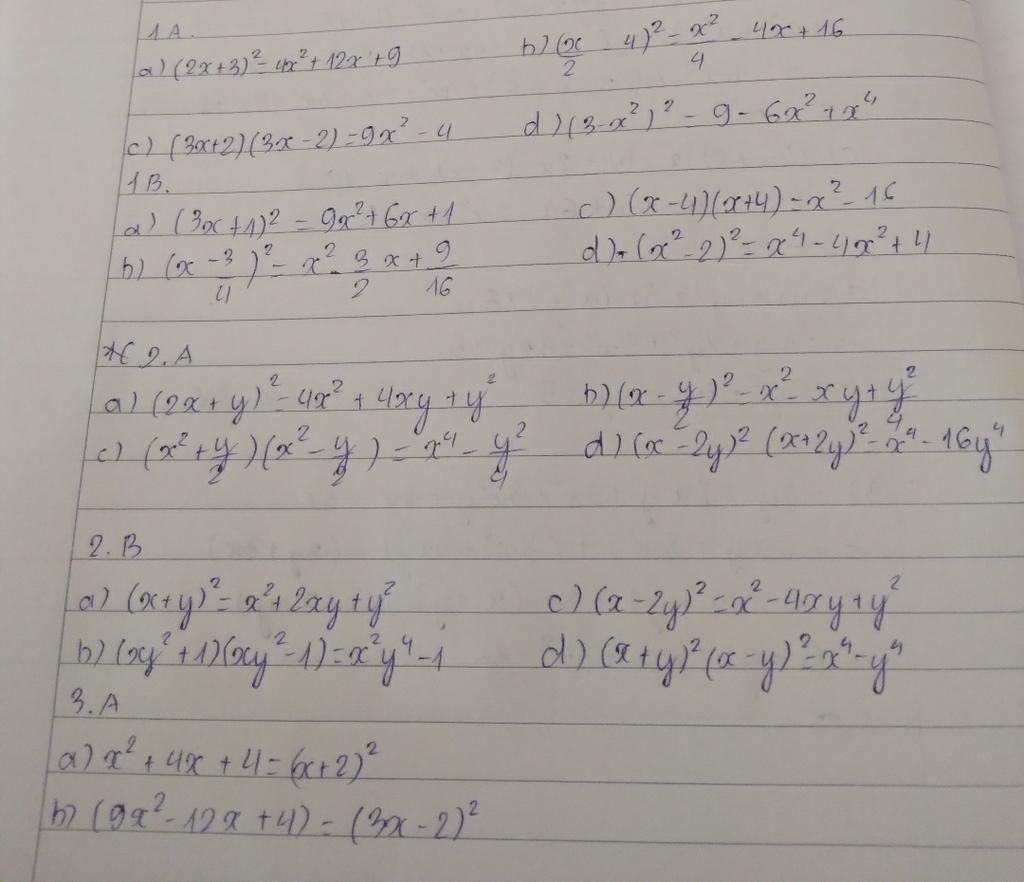 1A.
a) (2x+3)² = 4x² + 12x + 9 b) (x/2 - 4)² = x²/4 - 4x + 16
c) (3x+2)(3x-2) = 9x² - 4 d) (3-x²)² = 9 - 6x² + x⁴
1B.
a) (3x+1)² = 9x² + 6x + 1 c) (x-4)(x+4) = x² - 16
b) (x - 3/4)² = x² - 3/2 x + 9/16 d) (x² - 2)² = x⁴ - 4x² + 4
2.A
a) (2x+y)² = 4x² + 4xy + y² b) (x - y/2)² = x² - xy + y²/4
c) (x² + y/2)(x² - y/2) = x⁴ - y²/4 d) (x-2y)² (x+2y)² = x⁴ - 16y⁴
2.B
a) (x+y)² = x² + 2xy + y² c) (x-2y)² = x² - 4xy + y²
b) (xy² + 1)(xy² - 1) = x²y⁴ - 1 d) (x+y)² (x-y)² = x⁴ - y⁴
3.A
a) x² + 4x + 4 = (x+2)²
b) (9x² - 12x + 4) = (3x-2)²